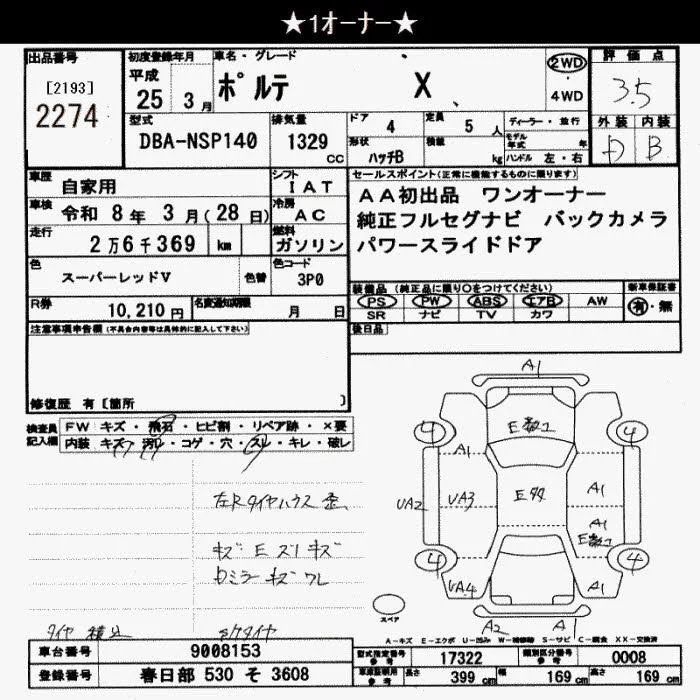 ★1オーナー★
出品番号
[2193]
2274
初度登録年月
平成
25 3月
車名・グレード
ポルテ X
2WD
4WD
評価点
3.5
外装 内装
D B
型式
DBA-NSP140
排気量
1329
CC
ドア 4
定員 5 人
形状 ハッチB
積載 kg
ディーラー・並行
モデル年式 年
ハンドル 左・右
車歴 自家用
シフト IAT
車検 令和 8年 3月(28日)
冷房 AC
走行 2万6千369 km
燃料 ガソリン
色 スーパーレッドV
色替
色コード 3P0
R券 10,210円
名変通知期限 月 日
セールスポイント(正常に機能するものに限ります)
AA初出品 ワンオーナー
純正フルセグナビ バックカメラ
パワースライドドア
装備品 (純正品に限り○をつけてください)
新車保証書
PS PW ABS エアB AW
有・無
SR ナビ TV カワ
後日品
注意事項申告欄(不具合内容等は具体的に記入して下さい)
修復歴 有〔箇所 〕
検査員記入欄
FW キズ・飛石・ヒビ割・リペア跡・×要
内装 キズ・汚レ・コゲ・穴・スレ・キレ・破レ
左Rタイヤハウス
キズ E ズリキズ
ミラー キズ ワレ
タイヤ 積込
A1
4 4
E数2
A1
UA2 UA3 E多 A1
A1
E数2
4 4
UA4 A1
A2 A1
スペア
A-キズ E-エクボ U-凹み W-補修跡 S-サビ C-腐食 XX-交換済
車台番号 9008153
登録番号 春日部 530 そ 3608
型式指定番号 参考 17322
類別区分番号 参考 0008
車庫証明用 参考 長さ 399 cm 幅 169 cm 高さ 169 cm